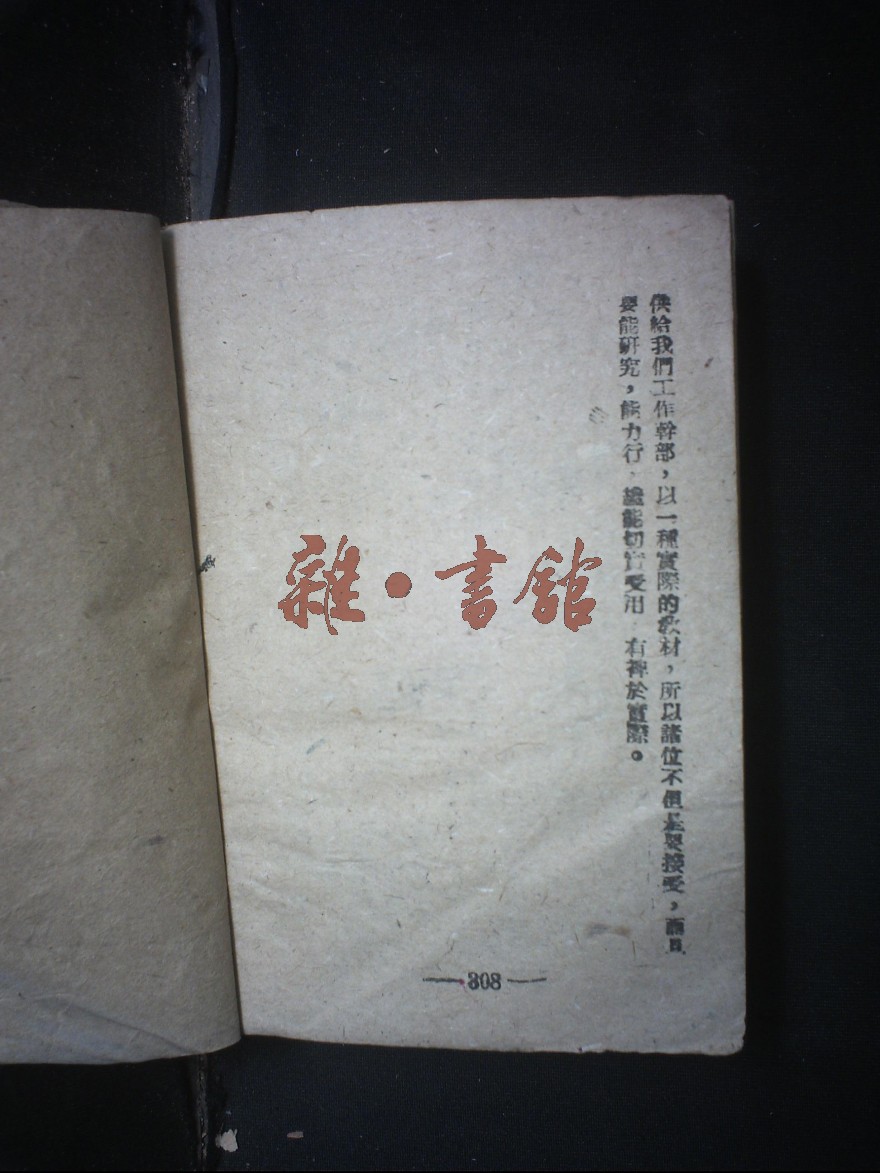 供給我們工作幹部，以一種實際的教材，所以諸位不但是要接受，而且
要能研究，能力行，纔能切實受用　有裨於實際。
雜·書館
—308—